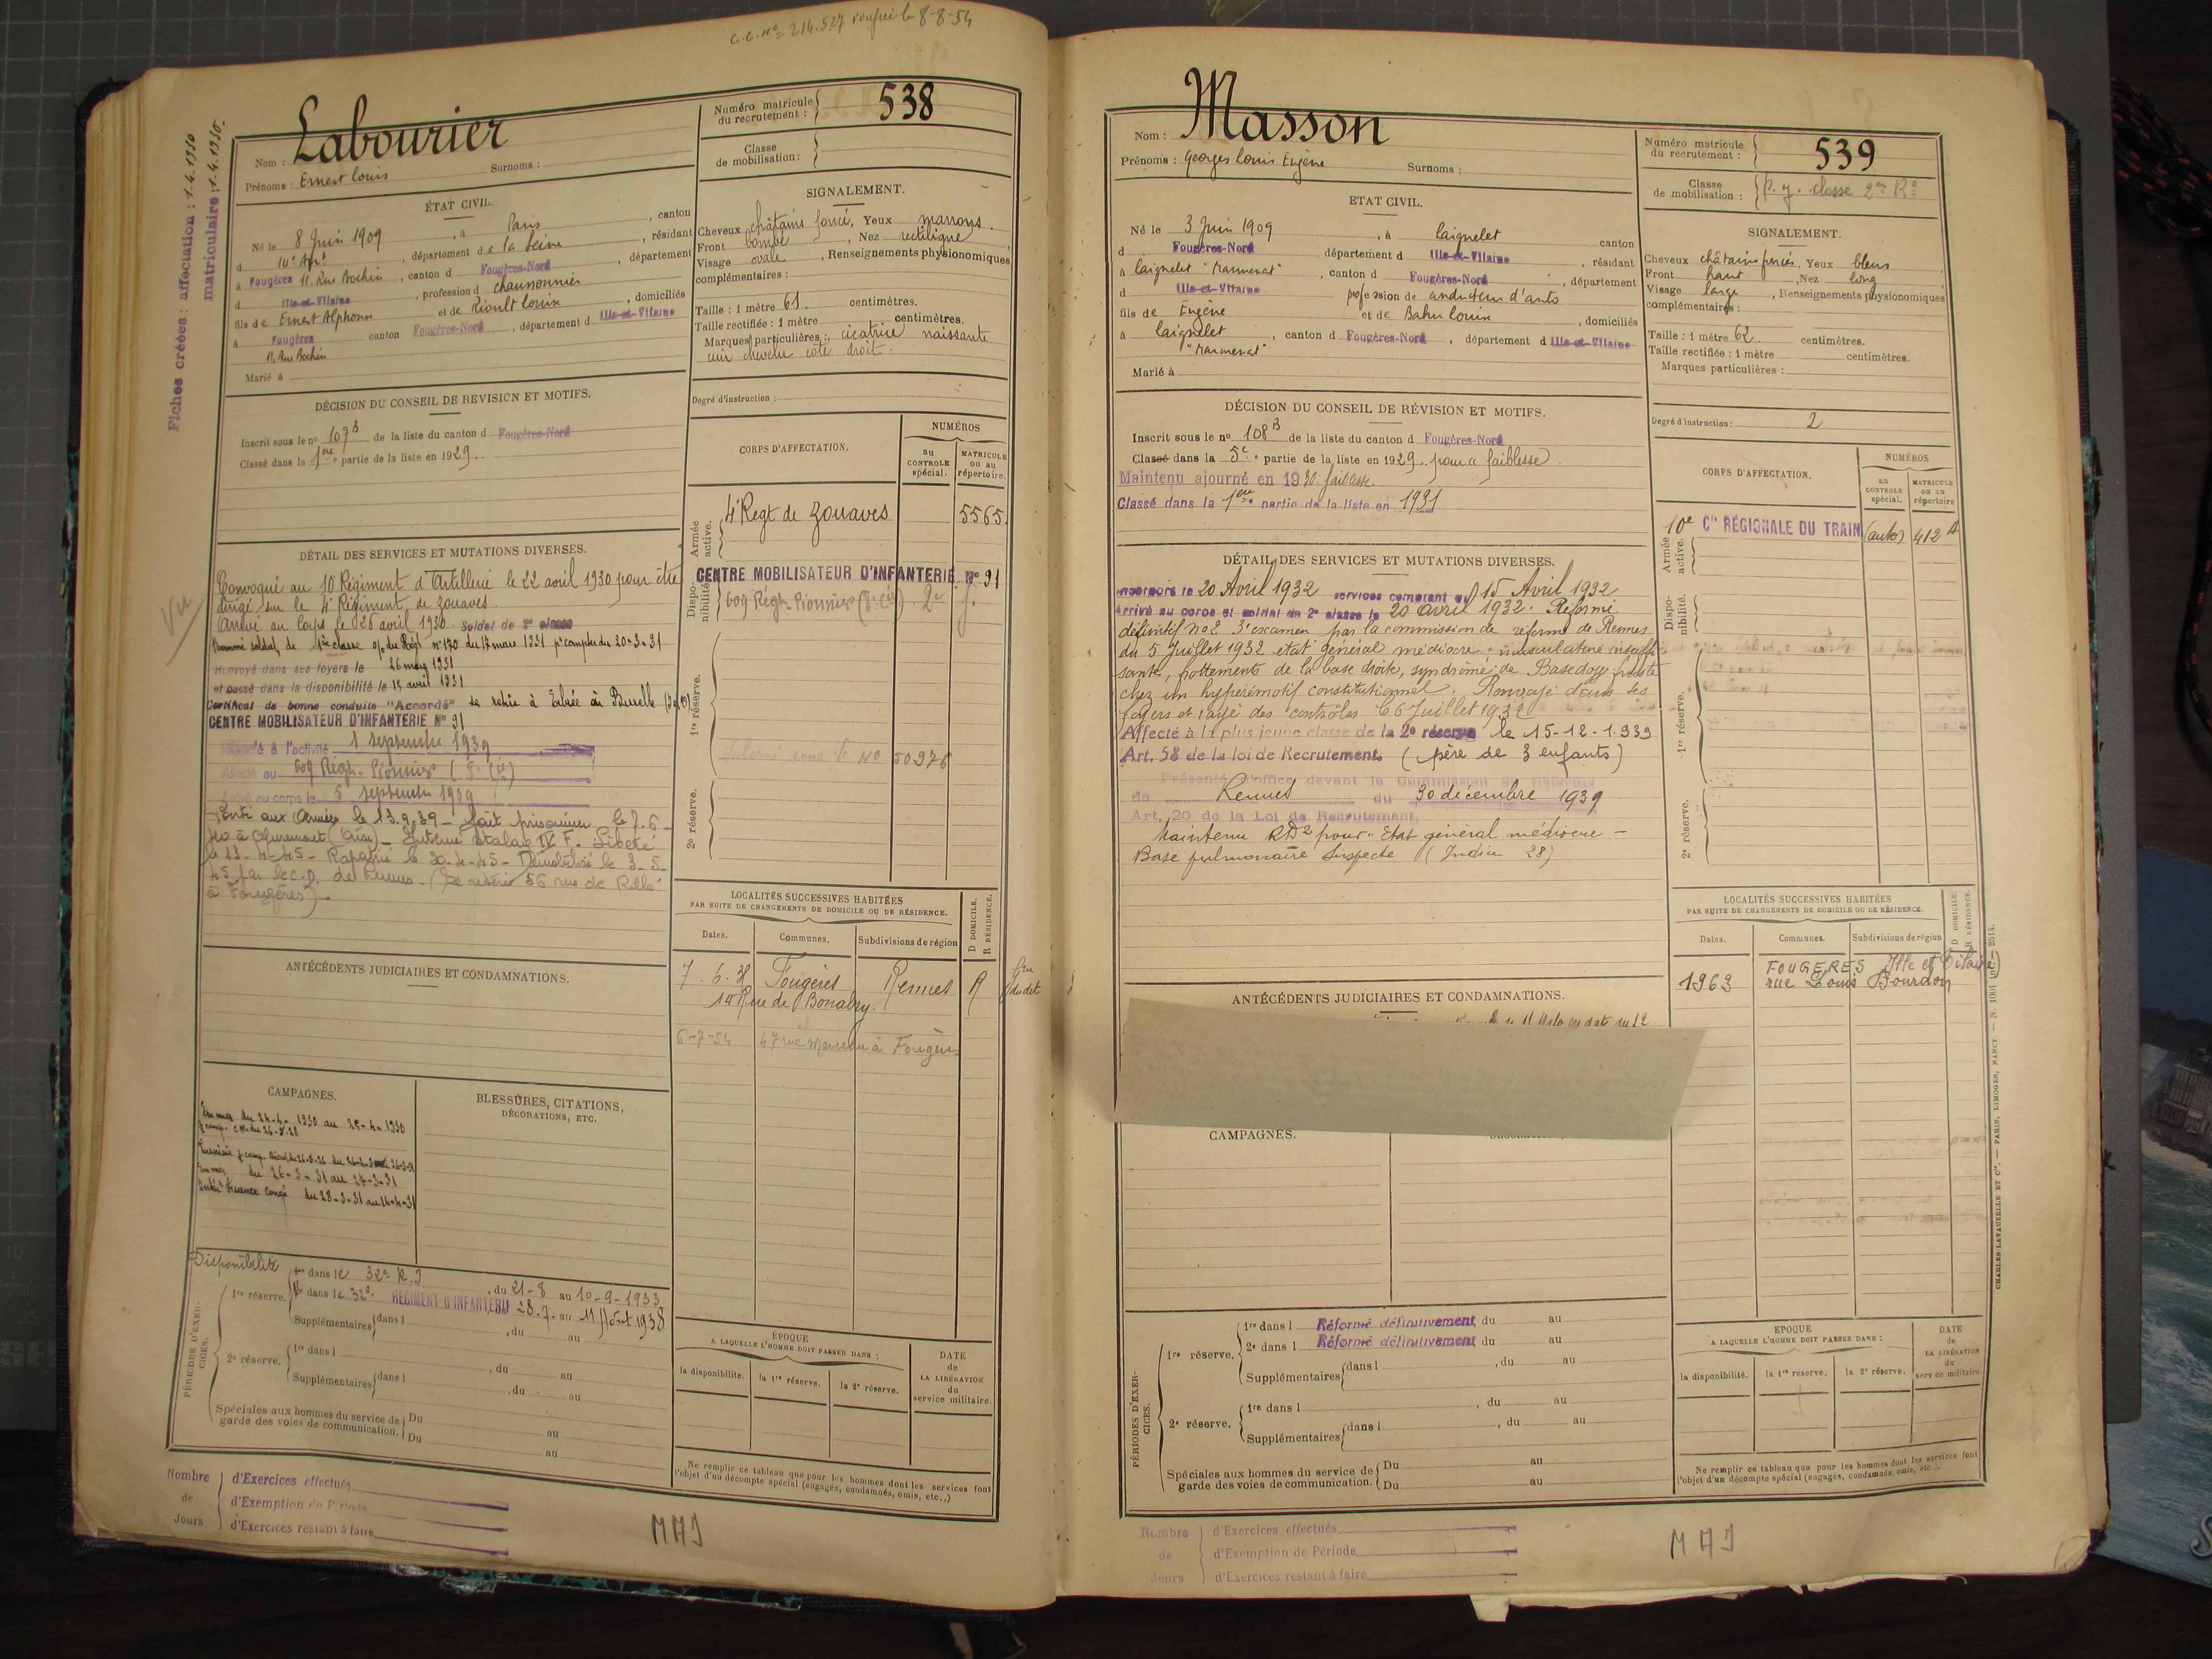 C.C. N° = 214.527 8-8-54
Fiches créées : affectation : 1.4.1930
matriculaire : 1.4.1930.
Vu
Nom : Labourier
Prénoms : Ernest Louis Surnoms :
Numéro matricule du recrutement : 538
Classe de mobilisation :
ÉTAT CIVIL.
Né le 8 Juin 1909, à Paris, canton
d 14e Arrt, département de la Seine, résidant
à Fougères 11. Rue Bochin, canton d Fougères-Nord, département
d Ille-et-Vilaine, profession d chaussonnier
fils de Ernest Alphonse et de Rioult Louise, domiciliés
à Fougères canton Fougères-Nord, département d Ille-et-Vilaine
11, Rue Bochin
Marié à
SIGNALEMENT.
Cheveux châtains foncé, Yeux marrons.
Front bombé, Nez rectiligne,
Visage ovale, Renseignements physionomiques
complémentaires :
Taille : 1 mètre 61. centimètres.
Taille rectifiée : 1 mètre centimètres.
Marques particulières : cicatrice naissante
cuir chevelu côté droit.
Degré d'instruction :
DÉCISION DU CONSEIL DE REVISION ET MOTIFS.
Inscrit sous le n° 107B de la liste du canton d Fougères-Nord
Classé dans la 1ère partie de la liste en 1929.
CORPS D'AFFECTATION.
NUMÉROS
au CONTROLE spécial.
MATRICULE ou au répertoire.
Armée active.
4e Regt de Zouaves 5565.
Disponibilité.
CENTRE MOBILISATEUR D'INFANTERIE N° 91
609 Régt Pionniers
1re réserve.
N° 50976
2e réserve.
DÉTAIL DES SERVICES ET MUTATIONS DIVERSES.
Convoqué au 10 Régiment d'Artillerie le 22 avril 1930 pour être
dirigé sur le 4e Régiment de Zouaves.
Arrivé au Corps le 26 avril 1930. Soldat de 2e classe
Nommé soldat de 1ère classe o/ du Régt n° 170 du 17 mars 1931 pr compter du 20-3-31
Renvoyé dans ses foyers le 26 mars 1931
et passé dans la disponibilité le 15 avril 1931
Certificat de bonne conduite "Accordé" se retire à
CENTRE MOBILISATEUR D'INFANTERIE N° 91
à l'activité 1 septembre 1939
Affecté au 609 Régt Pionniers
Arrivé au corps le 5 septembre 1939
Parti aux Armées le 13.9.39 - fait prisonnier le 7.6-
40 à (Aisne) - Interné Stalag IV F. Libéré
le 13-4-45 - Rapatrié le 30-4-45 - Démobilisé le 3-5-
45 par le C.D. de Rennes. (Se retire 56 rue de
à Fougères) -
LOCALITÉS SUCCESSIVES HABITÉES
PAR SUITE DE CHANGEMENTS DE DOMICILE OU DE RÉSIDENCE.
Dates. Communes. Subdivisions de région D DOMICILE. R RÉSIDENCE.
7-6-38 Fougères Rennes R
14 Rue de Bonabry.
6-7-54 47 rue Marceau à Fougères
ANTÉCÉDENTS JUDICIAIRES ET CONDAMNATIONS.
CAMPAGNES.
BLESSURES, CITATIONS,
DÉCORATIONS, ETC.
En mer du 24-4-1930 au 25-4-1930
En mer du 26-3-31 au 27-3-31
Intér France Congé du 28-3-31 au 14-4-31
Disponibilité
PÉRIODES D'EXERCICES.
1re réserve. 1re dans le 32e R.I, du 21-8 au 10-9-1933
2e dans le 32e RÉGIMENT D'INFANTERIE du 28-7 au 11 Août 1938
Supplémentaires dans l, du au
2e réserve. 1re dans l, du au
Supplémentaires dans l, du au
Spéciales aux hommes du service de garde des voies de communication. Du au
Du au
ÉPOQUE
A LAQUELLE L'HOMME DOIT PASSER DANS :
la disponibilité. la 1re réserve. la 2e réserve.
DATE de LA LIBÉRATION du service militaire.
Ne remplir ce tableau que pour les hommes dont les services font
l'objet d'un décompte spécial (engagés, condamnés, omis, etc.,)
Nombre de Jours
d'Exercices effectués
d'Exemption de Période
d'Exercices restant à faire
MAJ
Nom : Masson
Prénoms : Georges Louis Eugène Surnoms :
Numéro matricule du recrutement : 539
Classe de mobilisation : P. j. classe 2e Re
ETAT CIVIL.
Né le 3 Juin 1909, à Laignelet canton
d Fougères-Nord département d Ille-et-Vilaine, résidant
à Laignelet, canton d Fougères-Nord, département
d Ille-et-Vilaine profession de conducteur d'auto
fils de Eugène et de Bahu Louise, domiciliés
à Laignelet, canton d Fougères-Nord, département d Ille-et-Vilaine
Marié à
SIGNALEMENT.
Cheveux châtains foncés, Yeux bleus
Front haut, Nez long
Visage large, Renseignements physionomiques
complémentaires :
Taille : 1 mètre 62. centimètres.
Taille rectifiée : 1 mètre centimètres.
Marques particulières :
Degré d'instruction : 2
DÉCISION DU CONSEIL DE RÉVISION ET MOTIFS.
Inscrit sous le n° 108B de la liste du canton d Fougères-Nord
Classé dans la 5e partie de la liste en 1929. pour " faiblesse
Maintenu ajourné en 1930. faiblesse
Classé dans la 1ere partie de la liste en 1931
CORPS D'AFFECTATION.
NUMÉROS
au CONTROLE spécial.
MATRICULE ou au répertoire
Armée active.
10e Cie RÉGIONALE DU TRAIN (auto) 412 A
Disponibilité.
1re réserve.
2e réserve.
DÉTAIL DES SERVICES ET MUTATIONS DIVERSES.
Incorporé le 20 Avril 1932 services comptant du 15 Avril 1932
Arrivé au corps et soldat de 2e classe le 20 avril 1932. Réformé
définitif n°2 3e examen par la commission de réforme de Rennes
du 5 Juillet 1932 état général médiocre - musculature insuffi
sante, frottements de la base droite, syndrome de Basedow fruste
chez un hyperémotif constitutionnel. Renvoyé dans ses
foyers et rayé des contrôles le 6 Juillet 1932
Affecté à la plus jeune classe de la 2e réserve le 15-12-1939
Art. 58 de la loi de Recrutement. (père de 3 enfants)
Présenté d'office devant la Commission de Réforme
de Rennes du 30 décembre 1939
Art. 20 de la Loi de Recrutement,
Maintenu RD2 pour "Etat général médiocre -
Base pulmonaire suspecte (Indice 28)
LOCALITÉS SUCCESSIVES HABITÉES
PAR SUITE DE CHANGEMENTS DE DOMICILE OU DE RÉSIDENCE.
Dates. Communes. Subdivisions de région D DOMICILE. R RÉSIDENCE.
1963 FOUGERES Ille et Vilaine)
rue Louis Bourdon
ANTÉCÉDENTS JUDICIAIRES ET CONDAMNATIONS.
en date du 12
CAMPAGNES.
PÉRIODES D'EXERCICES.
1re réserve. 1re dans l Réformé définitivement, du au
2e dans l Réformé définitivement, du au
Supplémentaires dans l, du au
2e réserve. 1re dans l, du au
Supplémentaires dans l, du au
Spéciales aux hommes du service de garde des voies de communication. Du au
Du au
EPOQUE
A LAQUELLE L'HOMME DOIT PASSER DANS :
la disponibilité. la 1re réserve. la 2e réserve.
DATE de LA LIBÉRATION du service militaire.
Ne remplir ce tableau que pour les hommes dont les services font
l'objet d'un décompte spécial (engagés, condamnés, omis, etc.).
CHARLES-LAVAUZELLE ET Cie. — PARIS, LIMOGES, NANCY. — N. 1001 2514.
Nombre de Jours
d'Exercices effectués
d'Exemption de Période
d'Exercices restant à faire
MAJ